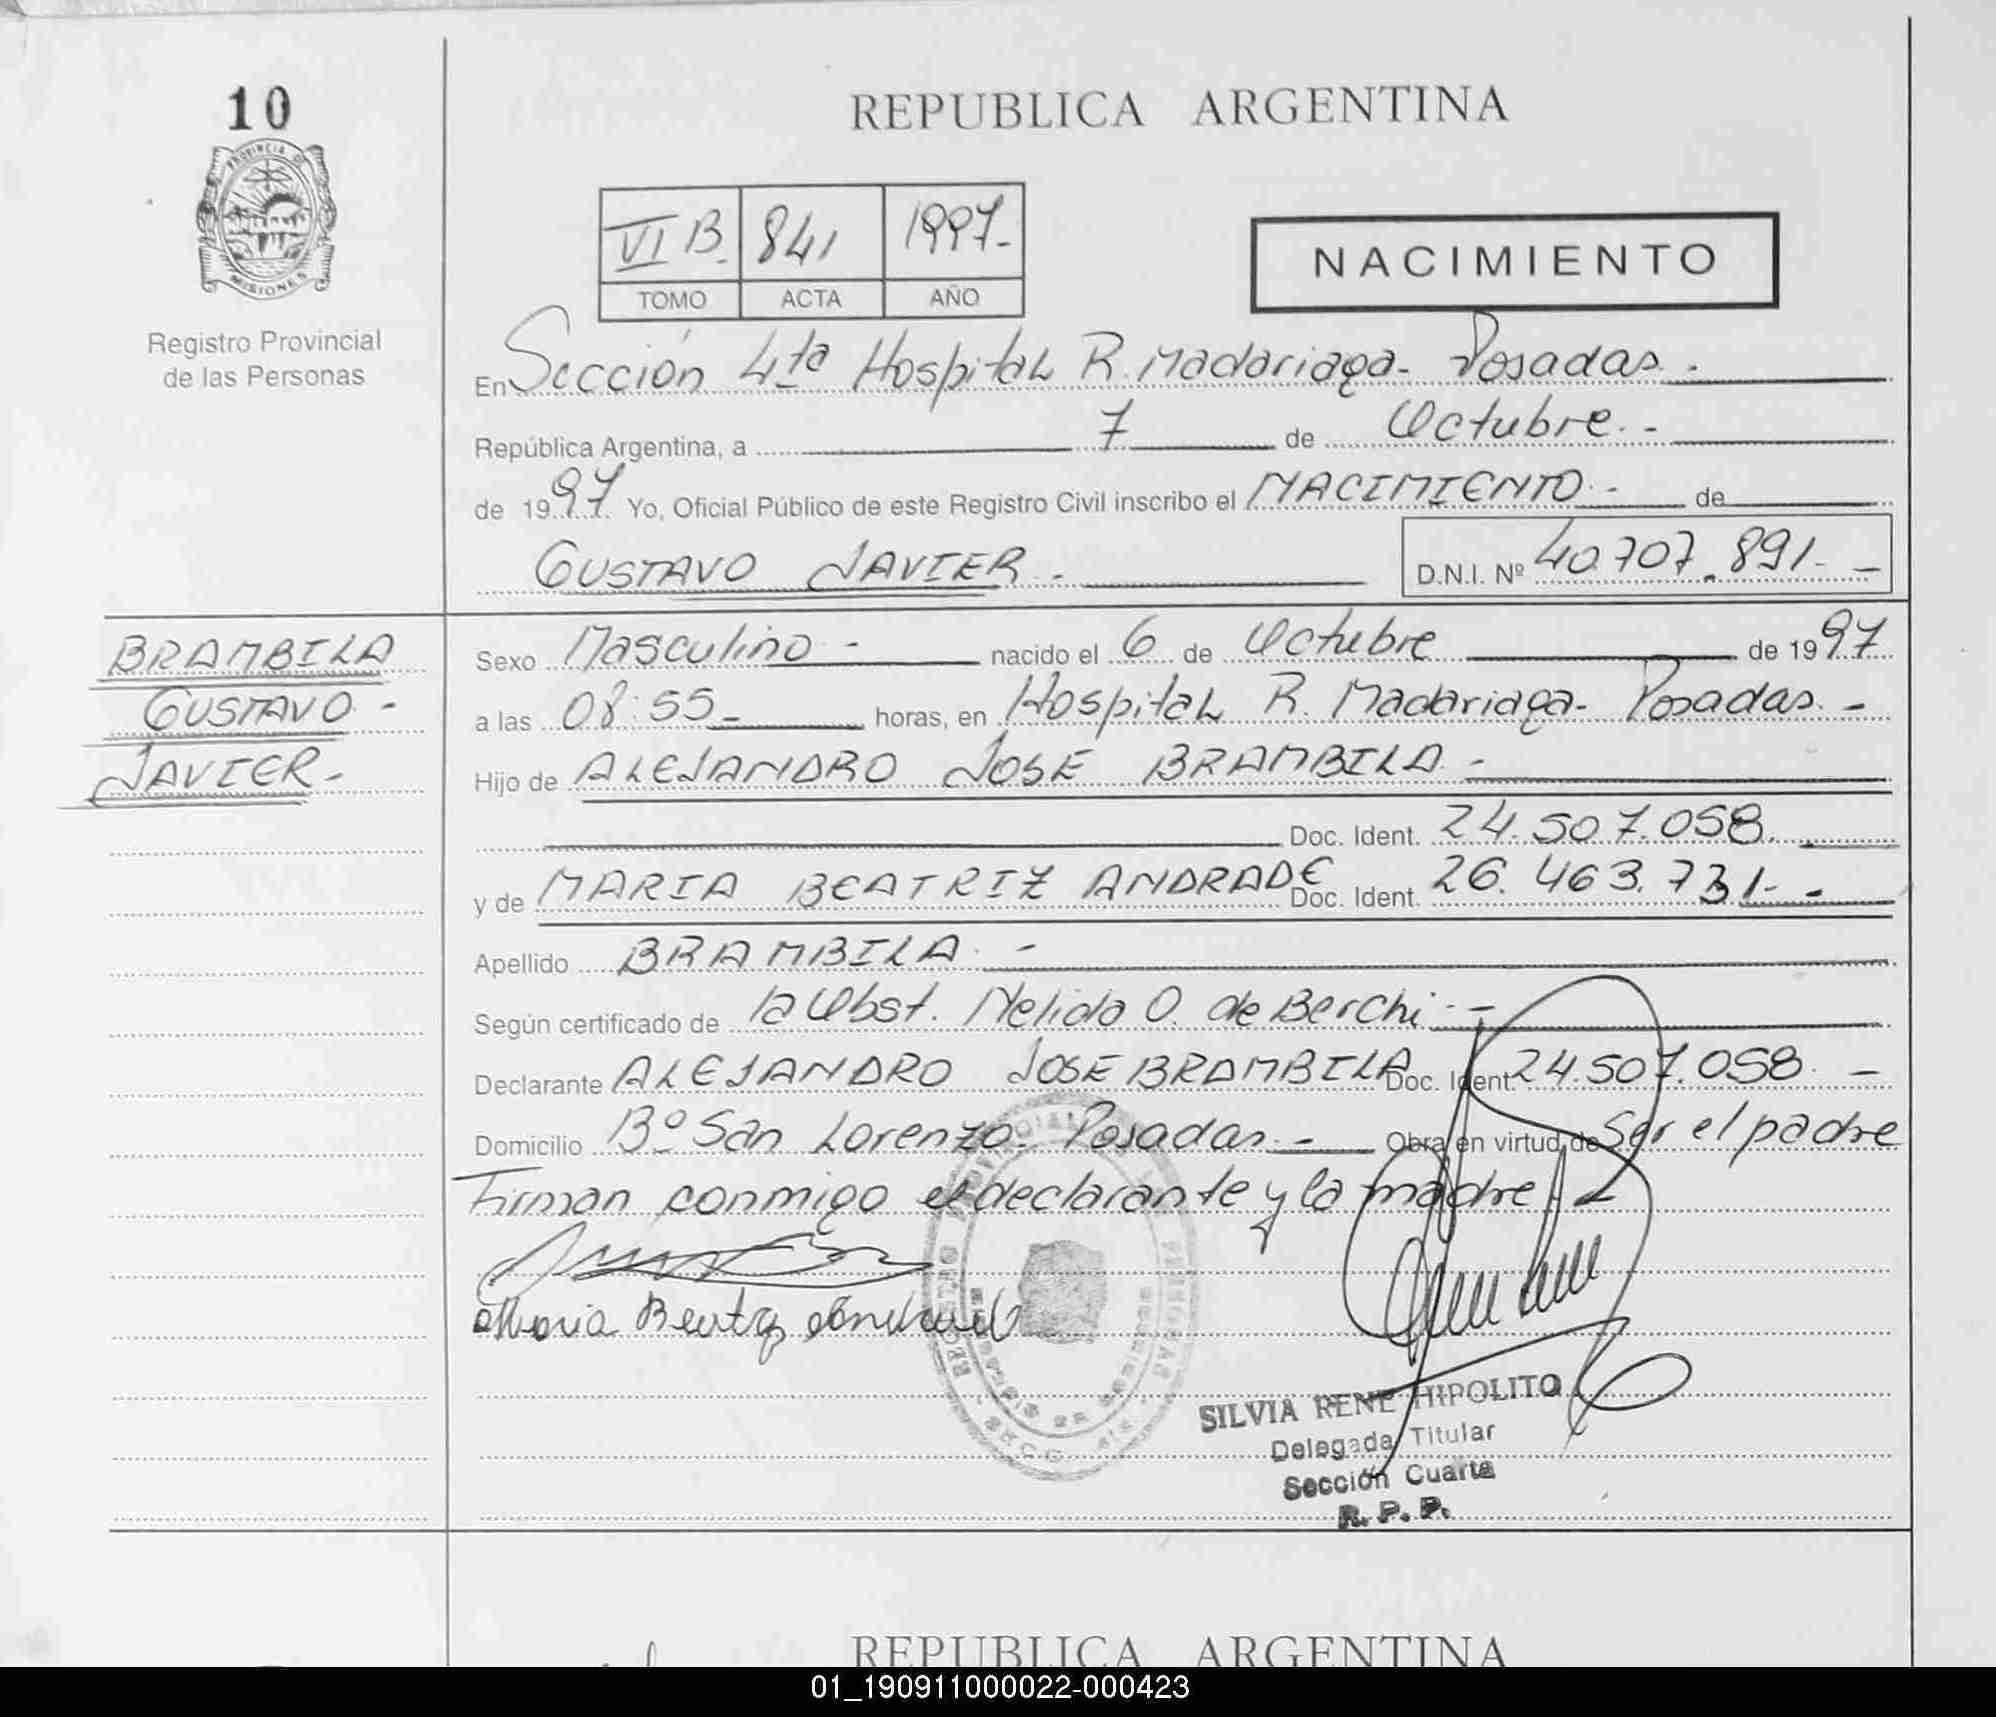 10
PROVINCIA DE
MISIONES
Registro Provincial
de las Personas
REPUBLICA ARGENTINA
VI B. 841 1997.-
TOMO ACTA AÑO
NACIMIENTO
En Sección 4ta Hospital R. Madariaga- Posadas.-
República Argentina, a 7 de Octubre.-
de 1997 Yo, Oficial Público de este Registro Civil inscribo el NACIMIENTO.- de
GUSTAVO JAVIER.- D.N.I. Nº 40.707.891.-
BRAMBILA
GUSTAVO.-
JAVIER.-
Sexo Masculino.- nacido el 6 de Octubre de 1997
a las 08:55.- horas, en Hospital R. Madariaga- Posadas.-
Hijo de ALEJANDRO JOSE BRAMBILA.-
Doc. Ident. 24.507.058.
y de MARIA BEATRIZ ANDRADE Doc. Ident. 26.463.731.-
Apellido BRAMBILA.-
Según certificado de la Obst. Nelida O. de Berchi.-
Declarante ALEJANDRO JOSE BRAMBILA Doc. Ident. 24.507.058.-
Domicilio Bº San Lorenzo- Posadas.- Obra en virtud de Ser el padre
Firman conmigo el declarante y la madre.-
Maria Beatriz Andrade
SILVIA RENE HIPOLITO
Delegada Titular
Sección Cuarta
R. P. P.
REPUBLICA ARGENTINA
01_190911000022-000423